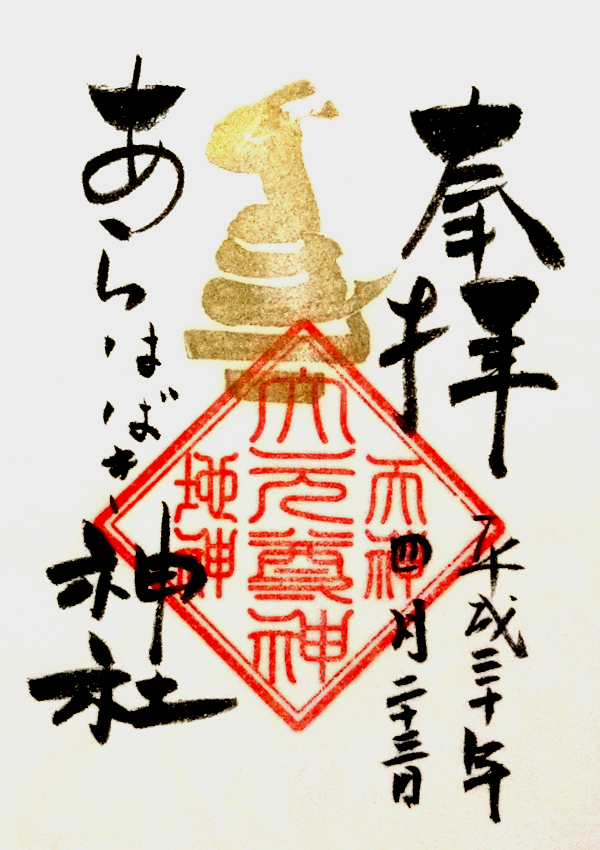 奉拝
平成三十年
四月二十三日
天神
大元尊神
地神
あらはばき
神社